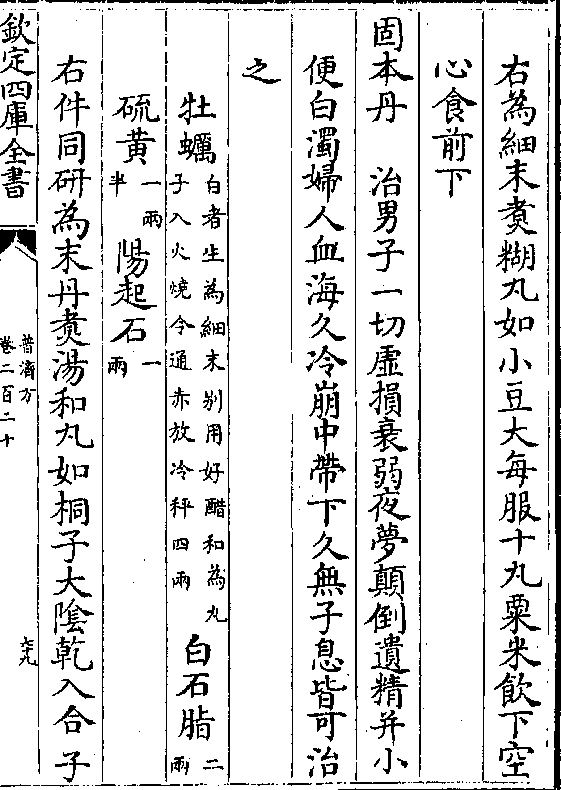 右為細末煑糊丸如小豆大每服十丸粟米飲下空
心食前下
固本丹　治男子一切虛損衰弱夜夢顛倒遺精并小
便白濁婦人血海久冷崩中帶下久無子息皆可治
之
牡蠣白者生為細末别用好醋和為丸子入火燒令通赤放冷秤四兩　白石脂二兩
硫黄一兩半　陽起石一兩
右件同研為末丹煑湯和丸如桐子大陰乾入合子
欽定四庫全書
普濟方
卷二百二十
六十九